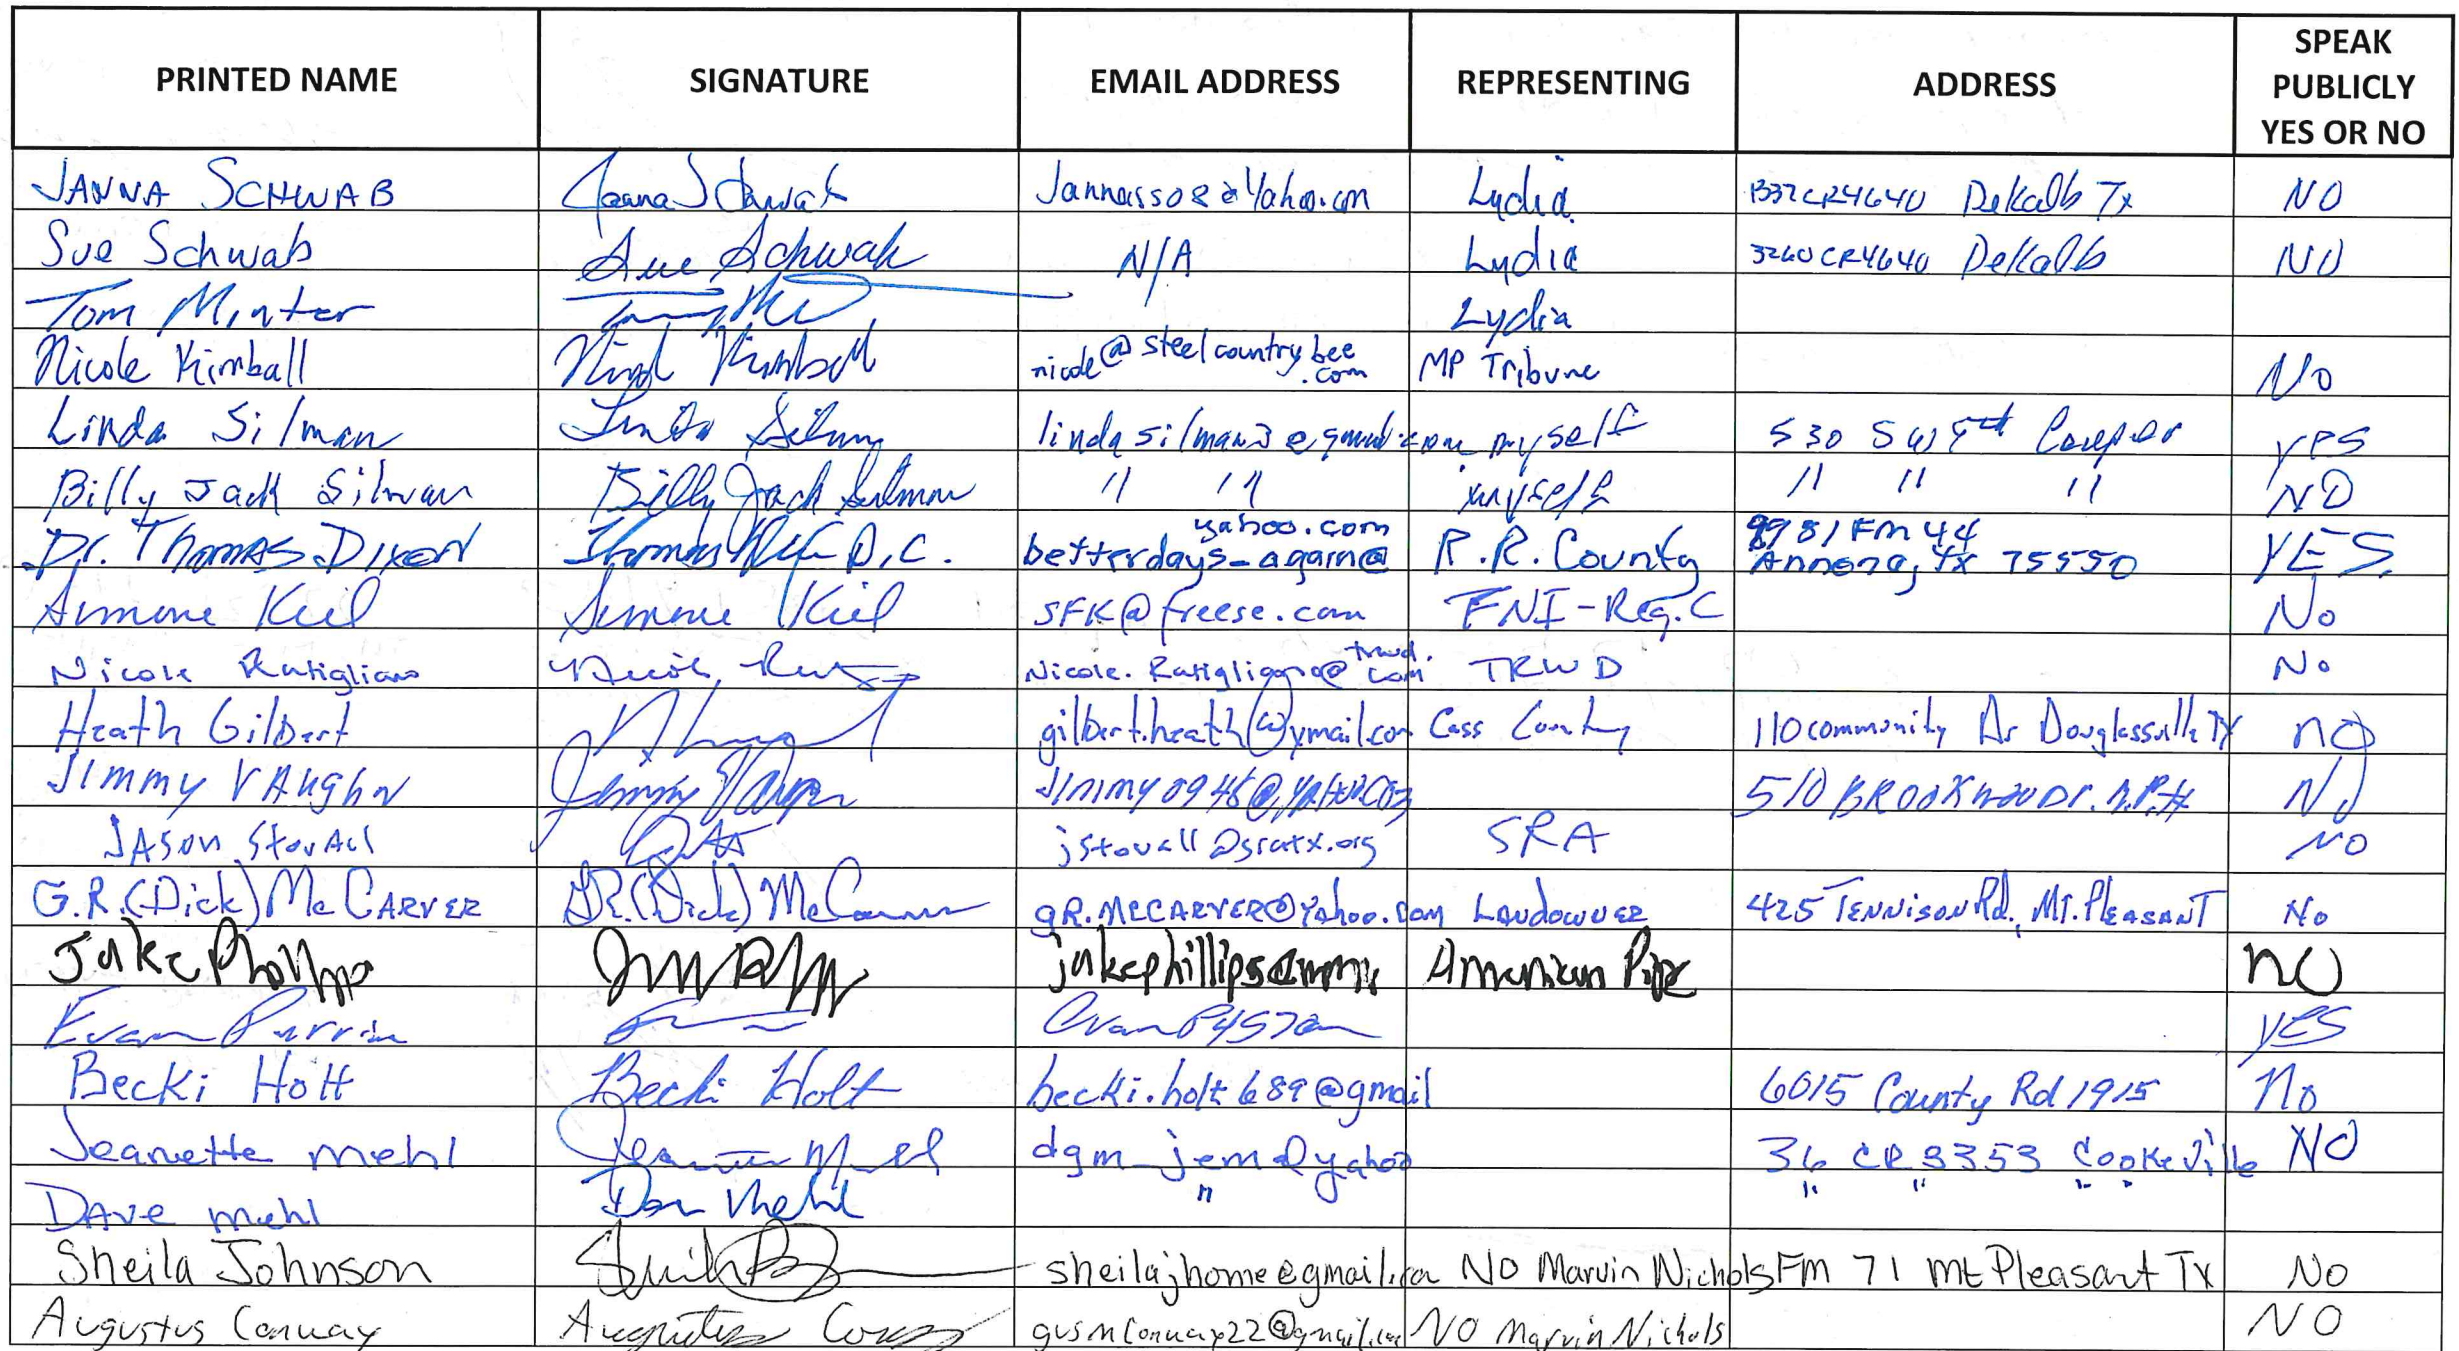 PRINTED NAME SIGNATURE EMAIL ADDRESS REPRESENTING ADDRESS SPEAK PUBLICLY YES OR NO
JANNA SCHWAB Janna Schwab Lydia DeKalb Tx NO
Sue Schwab Sue Schwab N/A Lydia 3260 CR4640 DeKalb NO
Tom Minter Lydia
Nicole Kimball Nicole Kimball nicole@steelcountrybee.com MP Tribune No
Linda Silman Linda Silman myself 530 SW 5th Cooper yes
Billy Jack Silman Billy Jack Silman " " myself " " " NO
Dr. Thomas Dixon Thomas D.C. betterdays_again@yahoo.com R.R. County 9981 FM 44 Annona, Tx 75550 YES
Simone Kiel Simone Kiel SFK@freese.com FNI-Reg.C No
Nicole Rutigliano Nicole TRWD No
Heath Gilbert gilbert.heath@ymail.com Cass County 110 community Dr Douglassville TX no
Jimmy VAughn Jimmy Vaughn 510 BROOKWOOD Dr. No
JASON StovAll jstovall@sratx.org SRA NO
G.R.(Dick) McCARVER G.R.(Dick) McCarver gR.McCARVER@Yahoo.com LANdowNER 425 TENNisoN Rd. MT. PleasanT No
Jake Phillips American Pipe no
Evan yes
Becki Holt Becki Holt becki.holt689@gmail 6015 County Rd 1915 No
Jeanette mehl Jeanette Mehl dgm_jem@yahoo 36 CR 3353 Cookeville NO
DAve mehl Dave Mehl " " " " "
Sheila Johnson sheilajhome@gmail.com NO Marvin Nichols Fm 71 mt Pleasant Tx No
Augustus Conway Augustus Conway gusmconway22@gmail.com NO Marvin Nichols NO